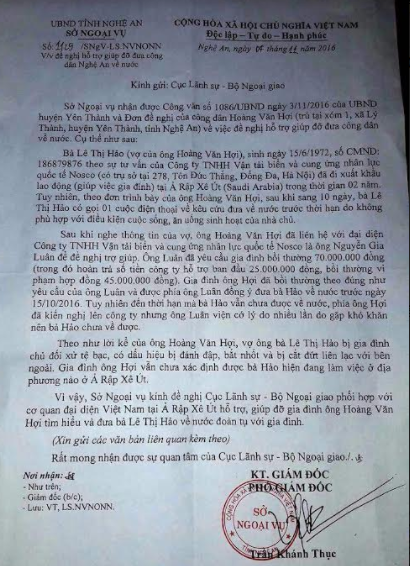 UBND TỈNH NGHỆ AN
SỞ NGOẠI VỤ
CỘNG HÒA XÃ HỘI CHỦ NGHĨA VIỆT NAM
Độc lập - Tự do - Hạnh phúc
Số: /SNgV-LS.NVNONN
V/v đề nghị hỗ trợ giúp đỡ đưa công dân Nghệ An về nước
Nghệ An, ngày tháng 11 năm 2016
Kính gửi: Cục Lãnh sự - Bộ Ngoại giao
Sở Ngoại vụ nhận được Công văn số 1086/UBND ngày 3/11/2016 của UBND
huyện Yên Thành và Đơn đề nghị của công dân Hoàng Văn Hợi (trú tại xóm 1, xã Lý
Thành, huyện Yên Thành, tỉnh Nghệ An) về việc đề nghị hỗ trợ giúp đỡ đưa công dân
về nước. Cụ thể như sau:
Bà Lê Thị Hảo (vợ của ông Hoàng Văn Hợi), sinh ngày 15/6/1972, số CMND:
186879876 theo sự tư vấn của Công ty TNHH Vận tải biển và cung ứng nhân lực
quốc tế Nosco (có trụ sở tại 278, Tôn Đức Thắng, Đống Đa, Hà Nội) đã đi xuất khẩu
lao động (giúp việc gia đình) tại Ả Rập Xê Út (Saudi Arabia) trong thời gian 02 năm.
Tuy nhiên, theo đơn trình bày của ông Hoàng Văn Hợi, sau khi sang 10 ngày, bà Lê
Thị Hảo có gọi 01 cuộc điện thoại về kêu cứu đưa về nước trước thời hạn do không
phù hợp với điều kiện cuộc sống, ăn uống sinh hoạt của nhà chủ.
Sau khi nghe thông tin của vợ, ông Hoàng Văn Hợi đã liên hệ với đại diện
Công ty TNHH Vận tải biển và cung ứng nhân lực quốc tế Nosco là ông Nguyễn Gia
Luân để đề nghị trợ giúp. Ông Luân đã yêu cầu gia đình bồi thường 70.000.000 đồng
(trong đó hoàn trả số tiền công ty hỗ trợ ban đầu 25.000.000 đồng, bồi thường vi
phạm hợp đồng 45.000.000 đồng). Gia đình ông Hợi đã bồi thường theo đúng như
yêu cầu của ông Luân và được phía ông Luân đồng ý đưa bà Hảo về nước trước ngày
15/10/2016. Tuy nhiên đến thời hạn mà bà Hảo vẫn chưa được về nước, phía ông Hợi
đã kiến nghị lên công ty nhưng ông Luân viện cớ lý do nhiều lần do gặp khó khăn
nên bà Hảo chưa về được.
Theo như lời kể của ông Hoàng Văn Hợi, vợ ông bà Lê Thị Hảo bị gia đình
chủ đối xử tệ bạc, có dấu hiệu bị đánh đập, bắt nhốt và bị cắt đứt liên lạc với bên
ngoài. Gia đình ông Hợi vẫn chưa xác định được bà Hảo hiện đang làm việc ở địa
phương nào ở Ả Rập Xê Út.
Vì vậy, Sở Ngoại vụ kính đề nghị Cục Lãnh sự - Bộ Ngoại giao phối hợp với
cơ quan đại diện Việt Nam tại Ả Rập Xê Út hỗ trợ, giúp đỡ gia đình ông Hoàng Văn
Hợi tìm hiểu và đưa bà Lê Thị Hảo về nước đoàn tụ với gia đình.
(Xin gửi các văn bản liên quan kèm theo)
Rất mong nhận được sự quan tâm của Cục Lãnh sự - Bộ Ngoại giao./.
Nơi nhận:
- Như trên;
- Giám đốc (b/c);
- Lưu: VT, LS.NVNONN.
KT. GIÁM ĐỐC
PHÓ GIÁM ĐỐC
SỞ
NGOẠI VỤ
Trần Khánh Thục